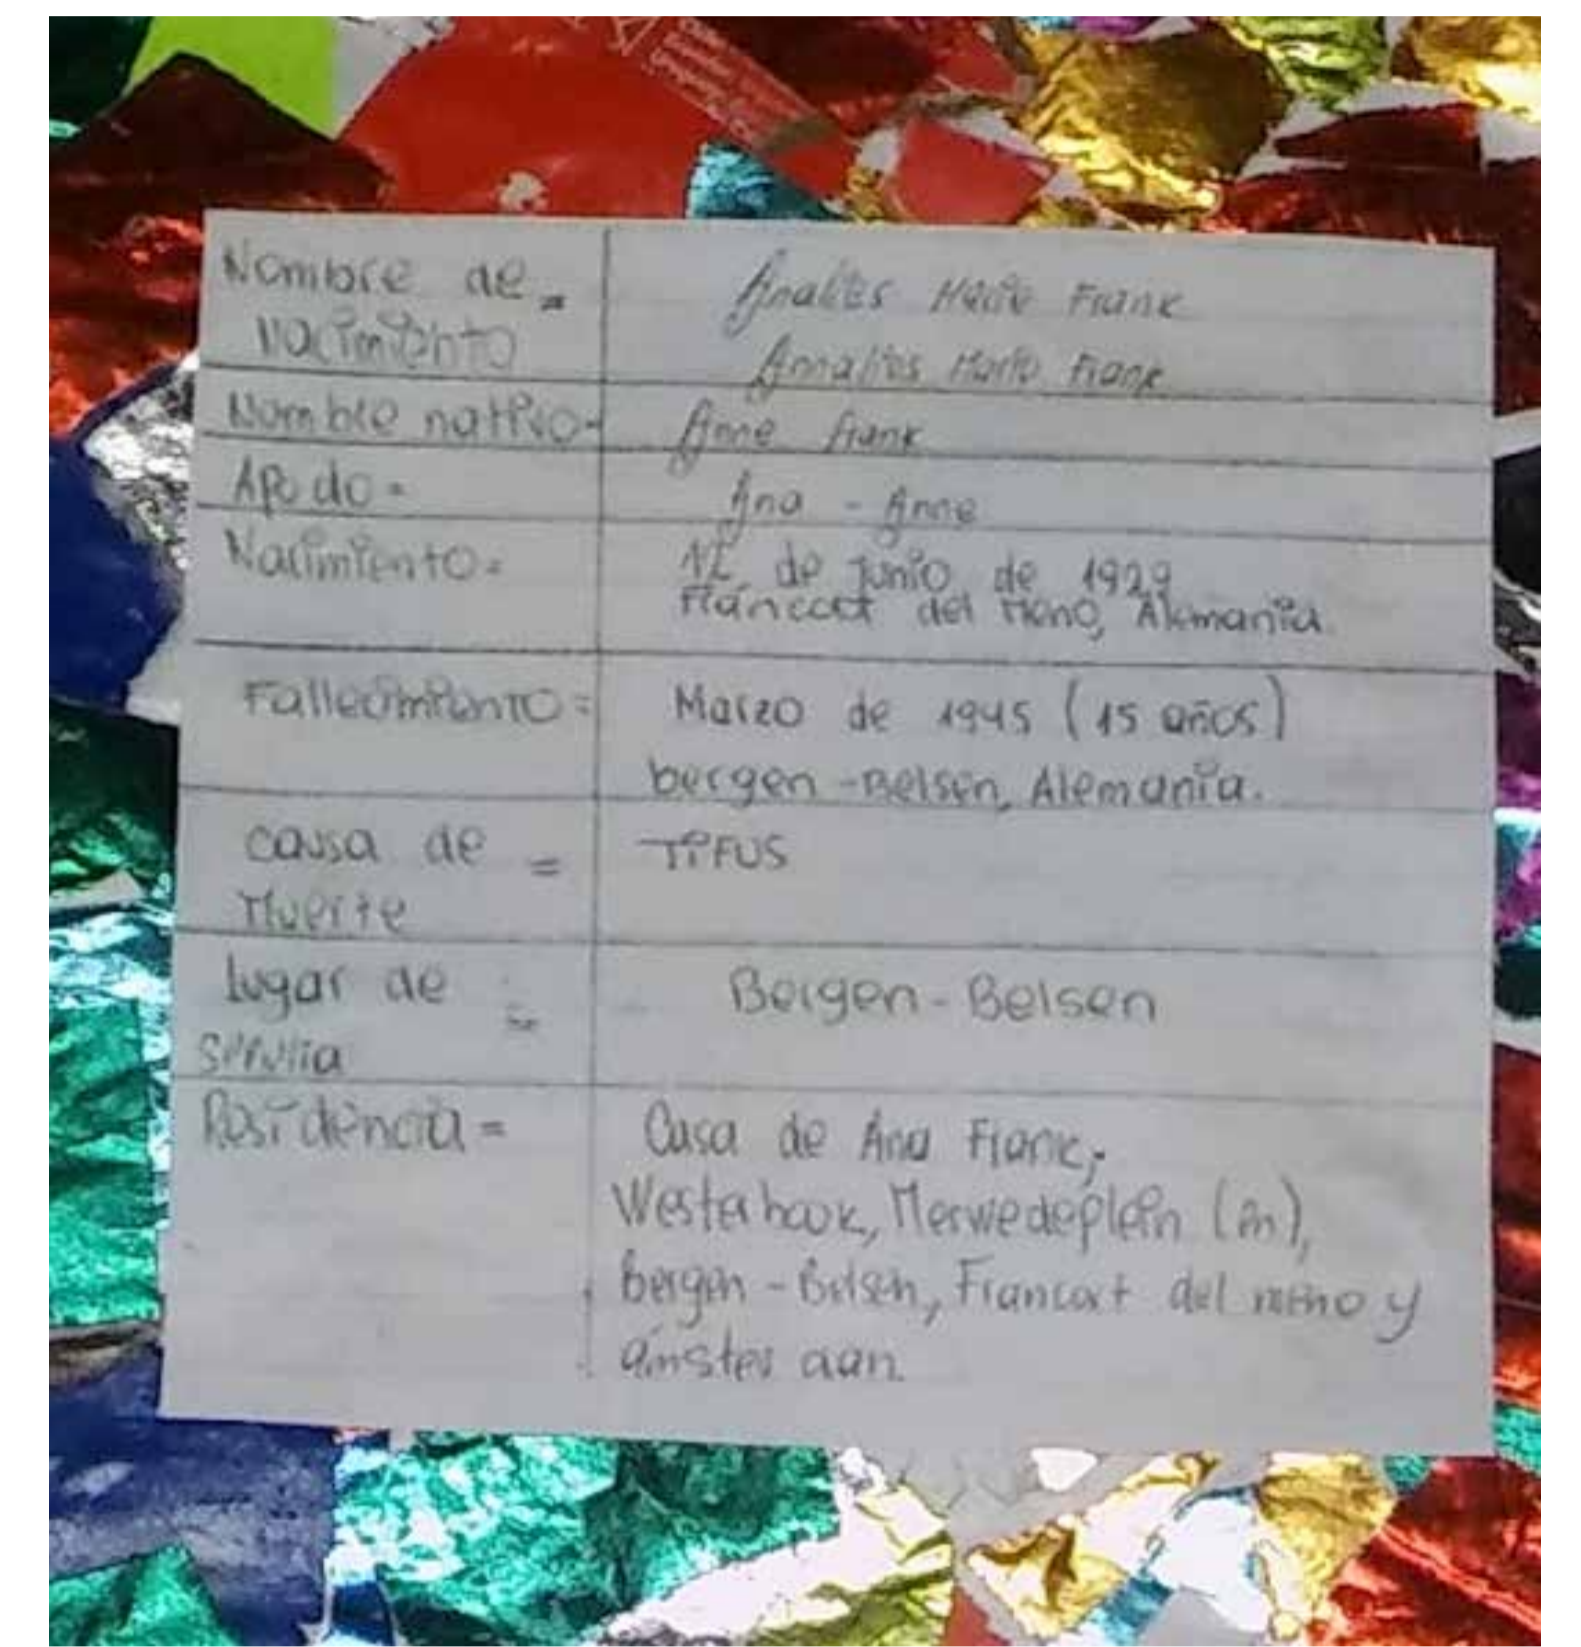 Nombre de = Analies Marie Frank
nacimiento Annalies Marie Frank
Nombre nativo= Anne Frank
Apodo = Ana - Anne
Nacimiento = 12 de Junio de 1929
Fráncort del Meno, Alemania.
Fallecimiento = Marzo de 1945 (15 años)
bergen-Belsen, Alemania.
causa de = TIFUS
Muerte
lugar de = Bergen-Belsen
Residencia = Casa de Ana Frank,
Merwedeplein (en),
bergen-Belsen, Francort del meno y